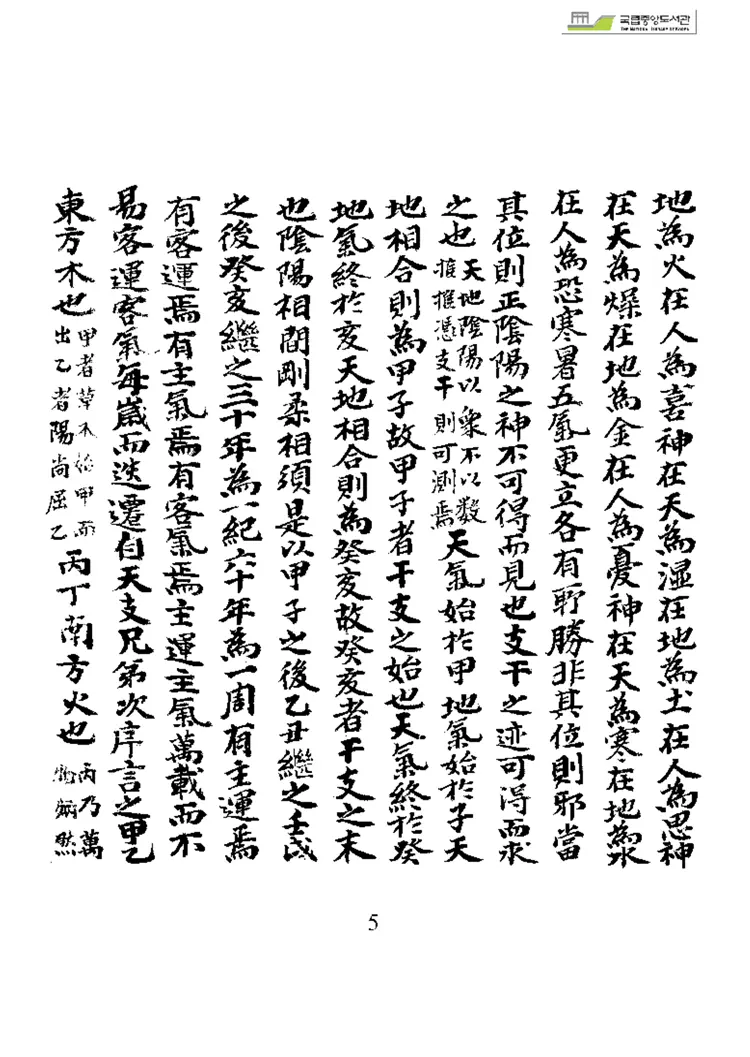 국립중앙도서관
THE NATIONAL LIBRARY OF KOREA
地為火在人為喜神在天為湿在地為土在人為思神
在天為燥在地為金在人為憂神在天為寒在地為水
在人為恐寒暑五氣更立各有所勝非其位則邪當
其位則正陰陽之神不可得而見也支干之迹可得而求
之也天地陰陽以象不以数推憑支干則可測焉天氣始於甲地氣始於子天
地相合則為甲子故甲子者干支之始也天氣終於癸
地氣終於亥天地相合則為癸亥故癸亥者干支之末
也陰陽相間剛柔相須是以甲子之後乙丑繼之壬戌
之後癸亥繼之三十年為一紀六十年為一周有主運焉
有客運焉有主氣焉有客氣焉主運主氣萬載而不
易客運客氣每歲而迭遷自天支兄第次序言之甲乙
東方木也甲者草木始甲而出乙者陽尚屈乙丙丁南方火也丙乃萬物炳然
5